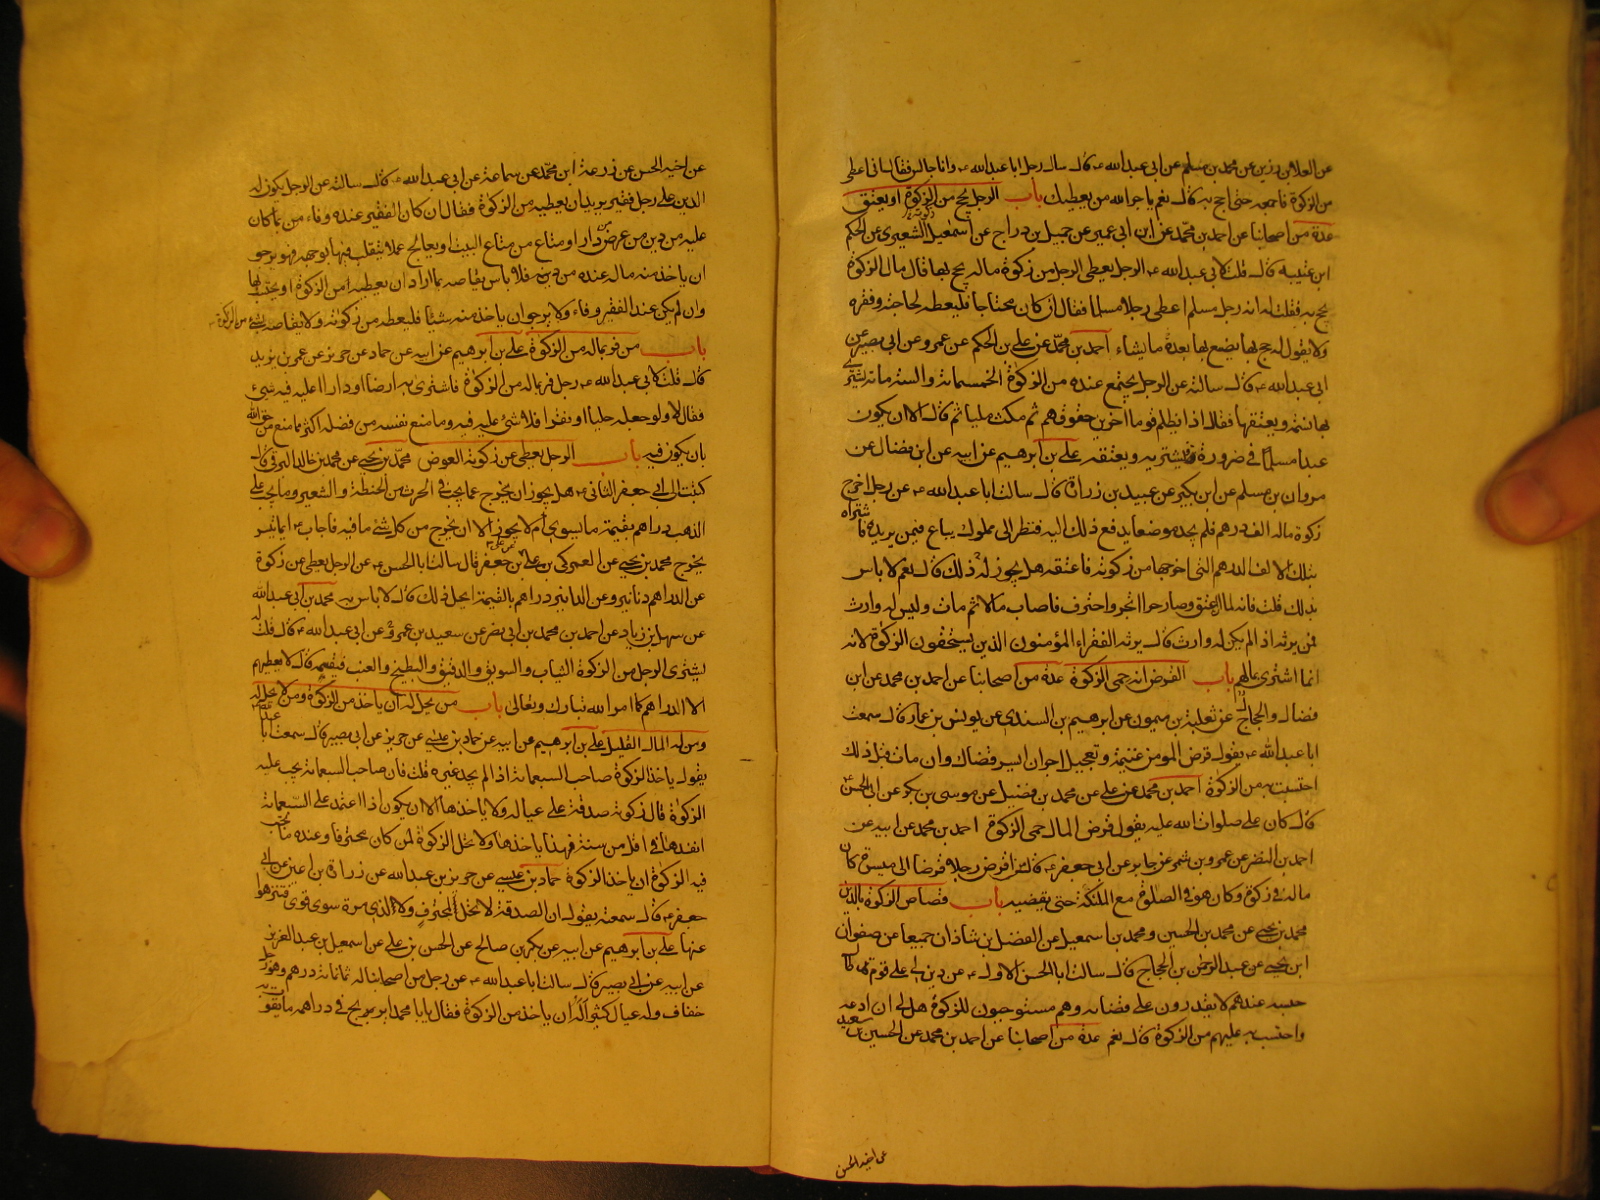 عن العلا بن رزين عن محمد بن مسلم عن ابى عبد الله ع قال سال رجل ابا عبد الله ع وانا جالس فقال انى اعطى
من الزكوة فاجمعه حتى احج به قال نعم ياجر الله من يعطيك باب الرجل يحج من الزكوة او يعتق
عدة من اصحابنا عن احمد بن محمد عن ابن ابى عمير عن جميل بن دراج عن اسمعيل الشعيرى عن الحكم
ابن عتيبه قال قلت لابى عبد الله ع الرجل يعطى الرجل من زكوة ماله يحج بها قال مال الزكوة
يحج به فقلت له انه رجل مسلم اعطى رجلا مسلما فقال ان كان محتاجا فليعطه لحاجته وفقره
ولا يقول له حج بها يصنع بها بعدة ما يشاء احمد بن محمد عن على بن الحكم عن عمرو عن ابى بصير عن
ابى عبد الله ع قال سالته عن الرجل يجتمع عنده من الزكوة الخمسمائة والستمائة يشترى
بها نسمة ويعتقها فقال اذا يظلم قوما اخرين حقوقهم ثم مكث مليا ثم قال الا ان يكون
عبدا مسلما فى ضرورة فيشتريه ويعتقه على بن ابرهيم عن ابيه عن ابن فضال عن
مروان بن مسلم عن ابن بكير عن عبيد بن زرارة قال سالت ابا عبد الله ع عن رجل اخرج
زكوة ماله الف درهم فلم يجد موضعا يدفع ذلك اليه فنظر الى مملوك يباع فيمن يريده فاشتراه
بتلك الالف الدرهم التى اخرجها من زكوته فاعتقه هل يجوز له ذلك قال نعم لا باس
بذلك قلت فانه لما ان اعتق وصار حرا اتجر واحترف فاصاب مالا ثم مات وليس له وارث
فمن يرثه اذا لم يكن له وارث قال يرثه الفقراء المؤمنون الذين يستحقون الزكوة لانه
انما اشترى بمالهم باب القرض انه حمى الزكوة عدة من اصحابنا عن احمد بن محمد عن ابن
فضال والحجال عن ثعلبة بن ميمون عن ابرهيم بن السندى عن يونس بن عمار قال سمعت
ابا عبد الله ع يقول قرض المومن غنيمة وتعجيل اجر ان ايسر قضاك وان مات قبل ذلك
احتسبت به من الزكوة احمد بن محمد عن على عن محمد بن فضيل عن موسى بن بكر عن ابى الحسن ع
قال كان على صلوات الله عليه يقول قرض المال حمى الزكوة احمد بن محمد عن ابيه عن
احمد بن النضر عن عمرو بن شمر عن جابر عن ابى جعفر ع قال من اقرض رجلا قرضا الى ميسرة كان
ماله فى زكوة وكان هو فى الصلوة مع الملئكة حتى يقضيه باب قصاص الزكوة بالدين
محمد بن يحيى عن محمد بن الحسين ومحمد بن اسمعيل عن الفضل بن شاذان جميعا عن صفوان
ابن يحيى عن عبد الرحمن بن الحجاج قال سالت ابا الحسن الاول ع عن دين لى على قوم قد طال
حبسه عندهم لا يقدرون على قضائه وهم مستوجبون للزكوة هل لى ان ادعه
واحتسب به عليهم من الزكوة قال نعم عدة من اصحابنا عن احمد بن محمد عن الحسين بن سعيد
عن اخيه الحسن
عن اخيه الحسن عن زرعة ابن محمد عن سماعة عن ابى عبد الله ع قال سالته عن الرجل يكون له
الدين على رجل فقير يريد ان يعطيه من الزكوة فقال ان كان الفقير عنده وفاء من ما كان
عليه من دين من عرض من دار او متاع من متاع البيت او يعالج عملا يتقلب فيها بوجهه فهو يرجو
ان ياخذ منه ماله عنده من دينه فلا باس يقاصه بما اراد ان يعطيه من الزكوة او يحتسب بها
وان لم يكن عند الفقير وفاء ولا يرجو ان ياخذ منه شيئا فليعطه من زكوته ولا يقاصه بشئ من الزكوة
باب من فر بماله من الزكوة على بن ابرهيم عن ابيه عن حماد عن حريز عن عمر بن يزيد
قال قلت لابى عبد الله ع رجل فر بماله من الزكوة فاشترى به ارضا او دارا اعليه فيه شىء
فقال لا ولو جعله حليا او نقرا فلا شئ عليه فيه وما منع نفسه من فضله اكثر مما منع من حق الله
بان يكون فيه باب الرجل يعطى عن زكوته العوض محمد بن يحيى عن محمد بن خالد البرقى قال
كتبت الى ابى جعفر الثانى ع هل يجوز ان يخرج عما يجب فى الحرث من الحنطة والشعير وما يجب على
الذهب دراهم بقيمة ما يسوى ام لا يجوز الا ان يخرج من كل شئ ما فيه فاجاب ع ايما تيسر
يخرج محمد بن يحيى عن العمركى بن على عن على بن جعفر قال سالت ابا الحسن ع عن الرجل يعطى عن زكوة
عن الدراهم دنانير وعن الدنانير دراهم بالقيمة ايحل ذلك قال لا باس به محمد بن ابى عبد الله
عن سهل بن زياد عن احمد بن محمد بن ابى نصر عن سعيد بن عمرو عن ابى عبد الله ع قال قلت له
يشترى الرجل من الزكوة الثياب والسويق والدقيق والبطيخ والعنب فيقسمه قال لا يعطيهم
الا الدراهم كما امر الله تبارك وتعالى باب من يحل له ان ياخذ من الزكوة ومن لا يحل له
ومن له المال القليل على بن ابرهيم عن ابيه عن حماد بن عيسى عن حريز عن ابى بصير قال سمعت ابا عبد الله ع
يقول ياخذ الزكوة صاحب السبعمائة اذا لم يجد غيره قلت فان صاحب السبعمائة يجب عليه
الزكوة قال زكوته صدقة على عياله ولا ياخذها الا ان يكون اذا اعتمد على السبعمائة
انفدها فى اقل من سنة فهذا ياخذها ولا تحل الزكوة لمن كان محترفا وعنده ما تجب
فيه الزكوة ان ياخذ الزكوة حماد بن عيسى عن حريز بن عبد الله عن زرارة بن اعين عن ابى
جعفر ع قال سمعته يقول ان الصدقة لا تحل لمحترف ولا لذى مرة سوى قوى فتنزهوا
عنها على بن ابرهيم عن ابيه عن بكر بن صالح عن الحسن بن على عن اسمعيل بن عبد العزيز
عن ابيه عن ابى بصير قال سالت ابا عبد الله ع عن رجل من اصحابنا له ثمانمائة درهم وهو رجل
خفاف وله عيال كثير اله ان ياخذ من الزكوة فقال يابا محمد ايربح فى دراهمه ما يقوت به